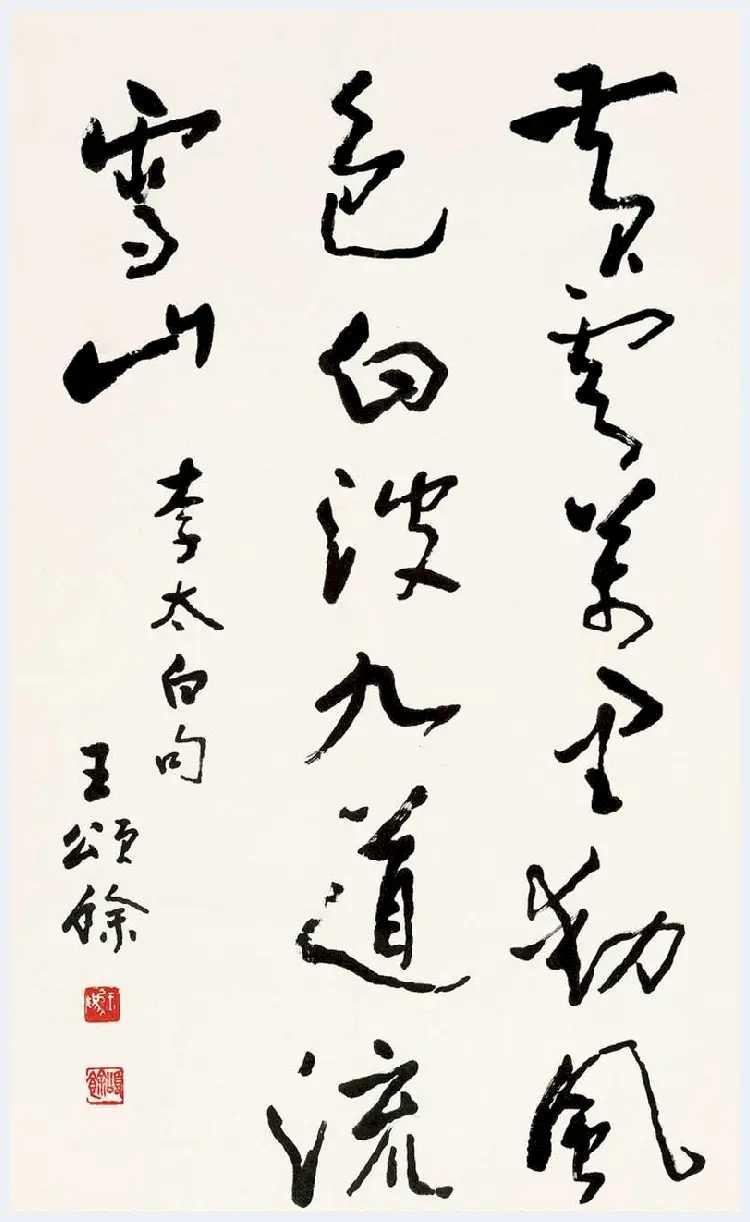 黄雲萬里動風
色白波九道流
雪山
李太白句
王頌餘